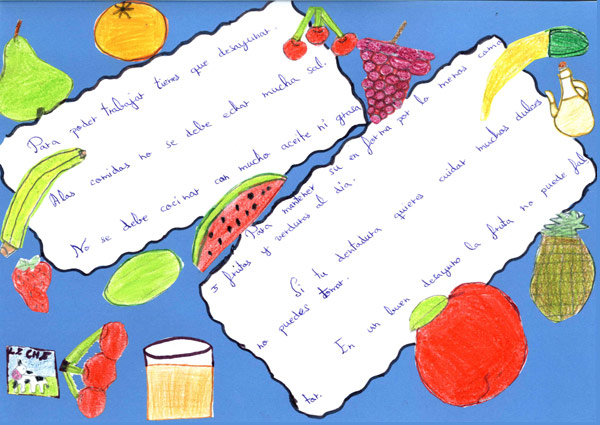 Para poder trabajar tienes que desayunar.
A las comidas no se debe echar mucha sal.
No se debe cocinar con mucho aceite ni grasa
Para mantener su en forma por lo menos coma
5 frutas y verduras al día.
Si tu dentadura quieres cuidar muchos dulces
no puedes tomar.
En un buen desayuno la fruta no puede fal
tar.
LECHE